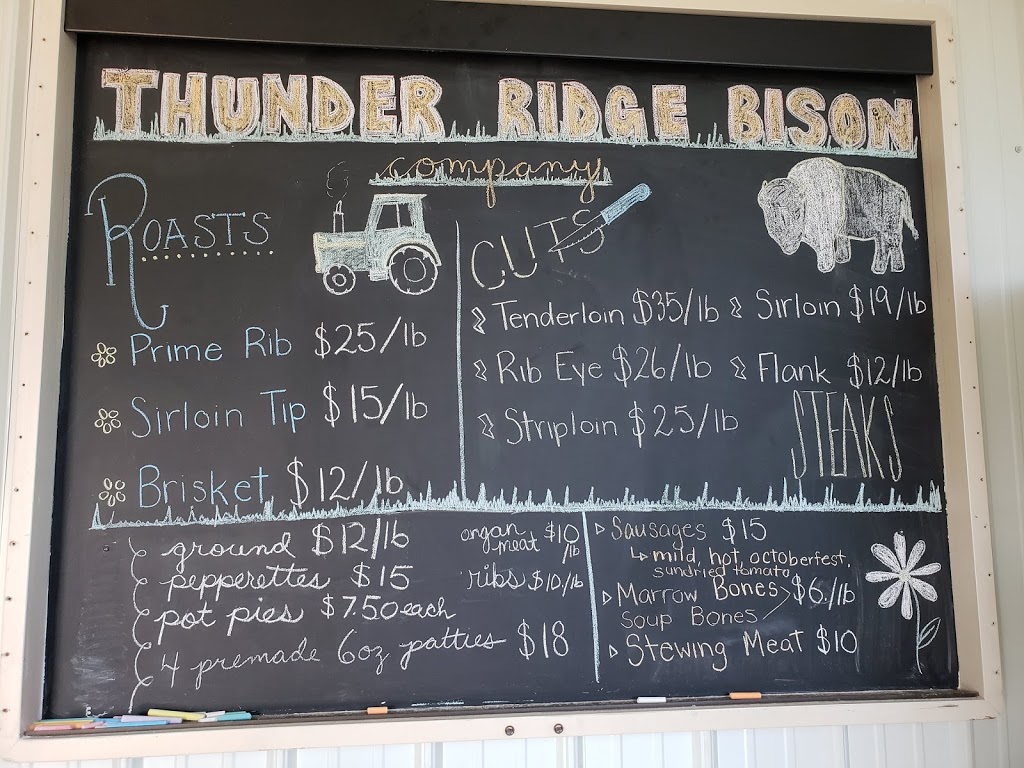 THUNDER RIDGE BISON
company
ROASTS
Prime Rib $25/lb
Sirloin Tip $15/lb
Brisket $12/lb
CUTS
Tenderloin $35/lb
Sirloin $19/lb
Rib Eye $26/lb
Flank $12/lb
Striploin $25/lb
STEAKS
ground $12/lb
pepperettes $15
pot pies $7.50 each
4 premade 6oz patties $18
organ meat $10/lb
ribs $10/lb
Sausages $15
mild, hot, octoberfest,
sundried tomato
Marrow Bones $6/lb
Soup Bones
Stewing Meat $10